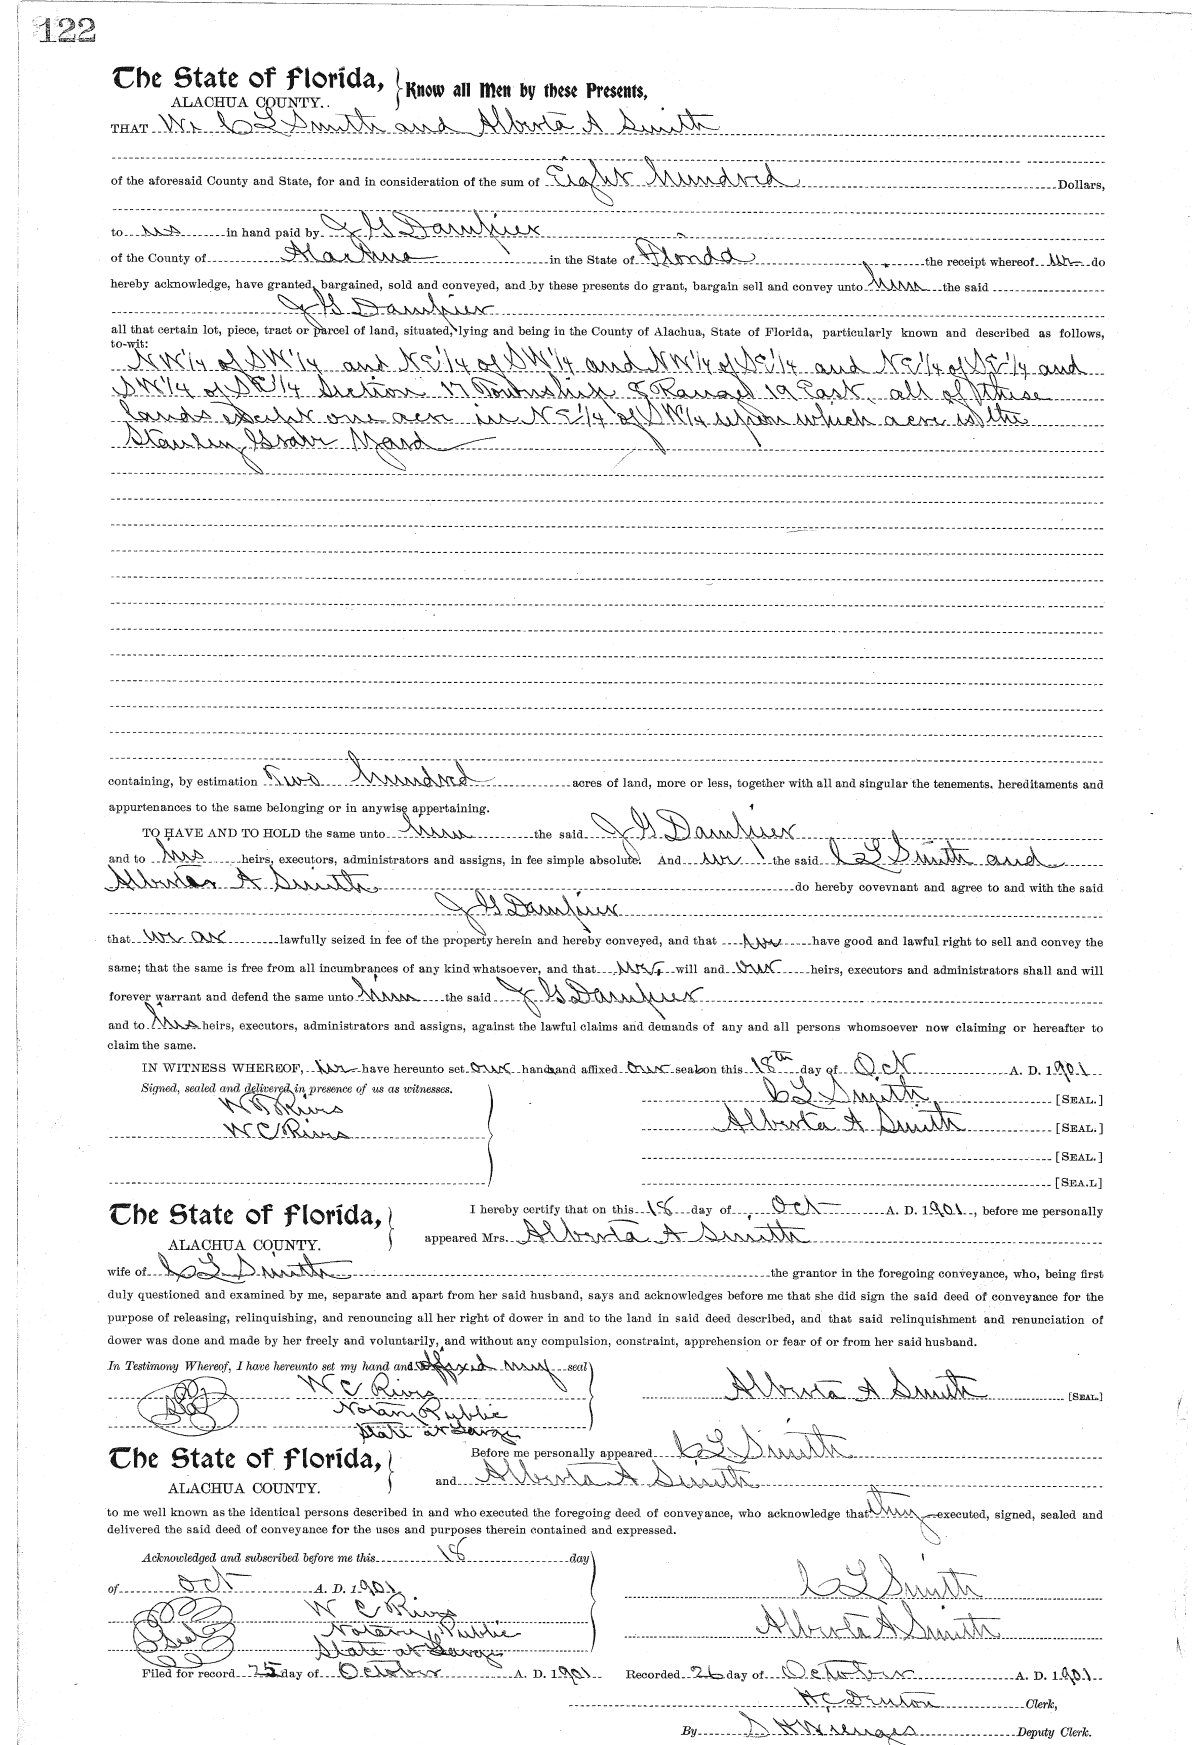 122
The State of Florida,
ALACHUA COUNTY.
Know all Men by these Presents,
THAT We C L Smith and Alberta A Smith
of the aforesaid County and State, for and in consideration of the sum of Eight hundred Dollars,
to us in hand paid by J G Dampier
of the County of Alachua in the State of Florida the receipt whereof we do
hereby acknowledge, have granted, bargained, sold and conveyed, and by these presents do grant, bargain sell and convey unto him the said
J G Dampier
all that certain lot, piece, tract or parcel of land, situated, lying and being in the County of Alachua, State of Florida, particularly known and described as follows,
to-wit:
NW 1/4 of SW 1/4 and NE 1/4 of SW 1/4 and NW 1/4 of SE 1/4 and NE 1/4 of SE 1/4 and
SW 1/4 of SE 1/4 Section 17 Township 8 Range 19 East, all of these
lands except one acre in NE 1/4 of SW 1/4 upon which acre is the
Stanley Grave Yard
containing, by estimation Two hundred acres of land, more or less, together with all and singular the tenements, hereditaments and
appurtenances to the same belonging or in anywise appertaining.
TO HAVE AND TO HOLD the same unto him the said J G Dampier
and to his heirs, executors, administrators and assigns, in fee simple absolute. And we the said C L Smith and
Alberta A Smith do hereby covevnant and agree to and with the said
J G Dampier
that we are lawfully seized in fee of the property herein and hereby conveyed, and that we have good and lawful right to sell and convey the
same; that the same is free from all incumbrances of any kind whatsoever, and that we will and our heirs, executors and administrators shall and will
forever warrant and defend the same unto him the said J G Dampier
and to his heirs, executors, administrators and assigns, against the lawful claims and demands of any and all persons whomsoever now claiming or hereafter to
claim the same.
IN WITNESS WHEREOF, we have hereunto set our hands and affixed our seals on this 18th day of Oct A. D. 1901
Signed, sealed and delivered in presence of us as witnesses.
C L Smith [SEAL.]
Rivers
W C Rivers
Alberta A Smith [SEAL.]
[SEAL.]
[SEA.L]
The State of Florida,
ALACHUA COUNTY.
I hereby certify that on this 18 day of Oct A. D. 1901, before me personally
appeared Mrs. Alberta A Smith
wife of C L Smith the grantor in the foregoing conveyance, who, being first
duly questioned and examined by me, separate and apart from her said husband, says and acknowledges before me that she did sign the said deed of conveyance for the
purpose of releasing, relinquishing, and renouncing all her right of dower in and to the land in said deed described, and that said relinquishment and renunciation of
dower was done and made by her freely and voluntarily, and without any compulsion, constraint, apprehension or fear of or from her said husband.
In Testimony Whereof, I have hereunto set my hand and affixed my seal
Seal
W C Rivers
Notary Public
State at Large
Alberta A Smith [SEAL.]
The State of Florida,
ALACHUA COUNTY.
Before me personally appeared C L Smith
and Alberta A Smith
to me well known as the identical persons described in and who executed the foregoing deed of conveyance, who acknowledge that they executed, signed, sealed and
delivered the said deed of conveyance for the uses and purposes therein contained and expressed.
Acknowledged and subscribed before me this 18 day
of Oct A. D. 1901
Seal
W C Rivers
Notary Public
State at Large
C L Smith
Alberta A Smith
Filed for record 25 day of October A. D. 1901 Recorded 26 day of October A. D. 1901
H C Denton Clerk,
By S H Wienges Deputy Clerk.